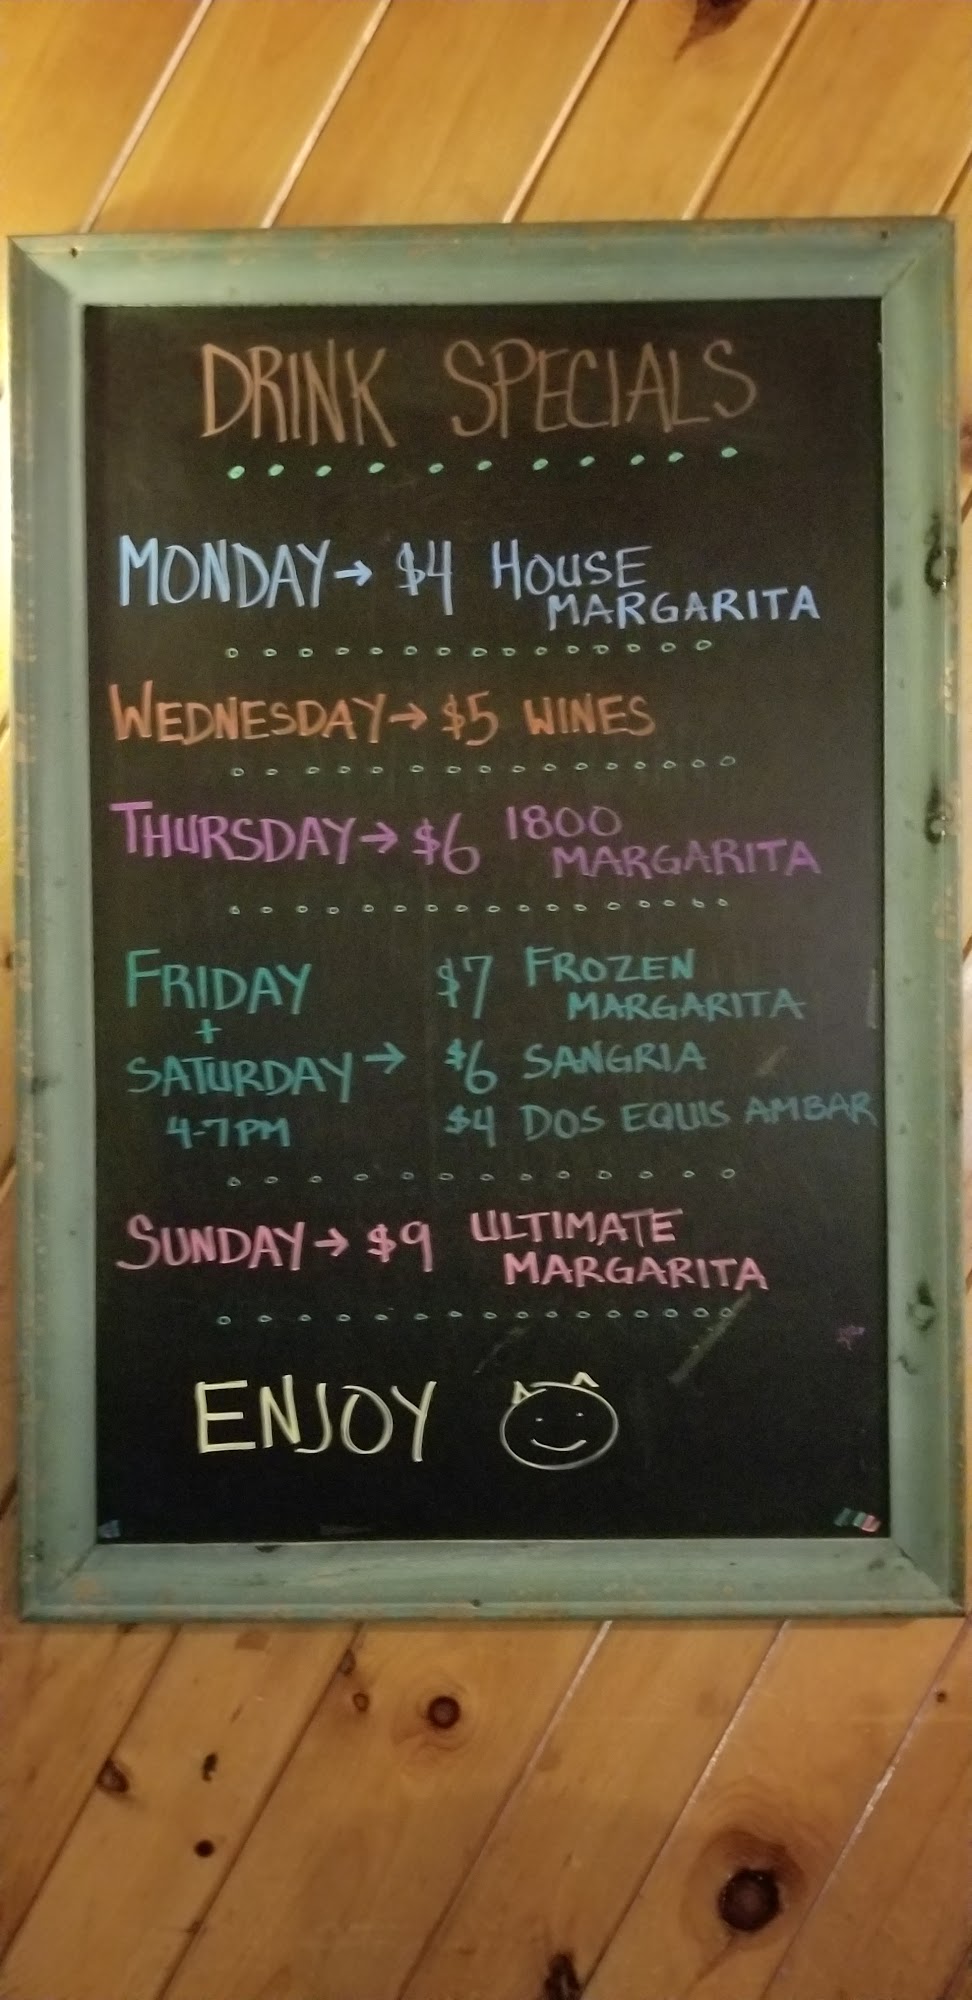 DRINK SPECIALS
MONDAY → $4 HOUSE
MARGARITA
WEDNESDAY → $5 WINES
THURSDAY → $6 1800
MARGARITA
FRIDAY $7 FROZEN
+ MARGARITA
SATURDAY → $6 SANGRIA
4-7PM $4 DOS EQUIS AMBAR
SUNDAY → $9 ULTIMATE
MARGARITA
ENJOY